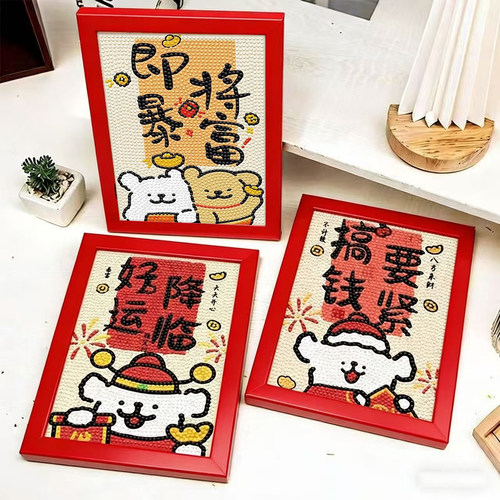 即将
暴富
好运
降临
天天开心
搞钱
要紧
八方来财